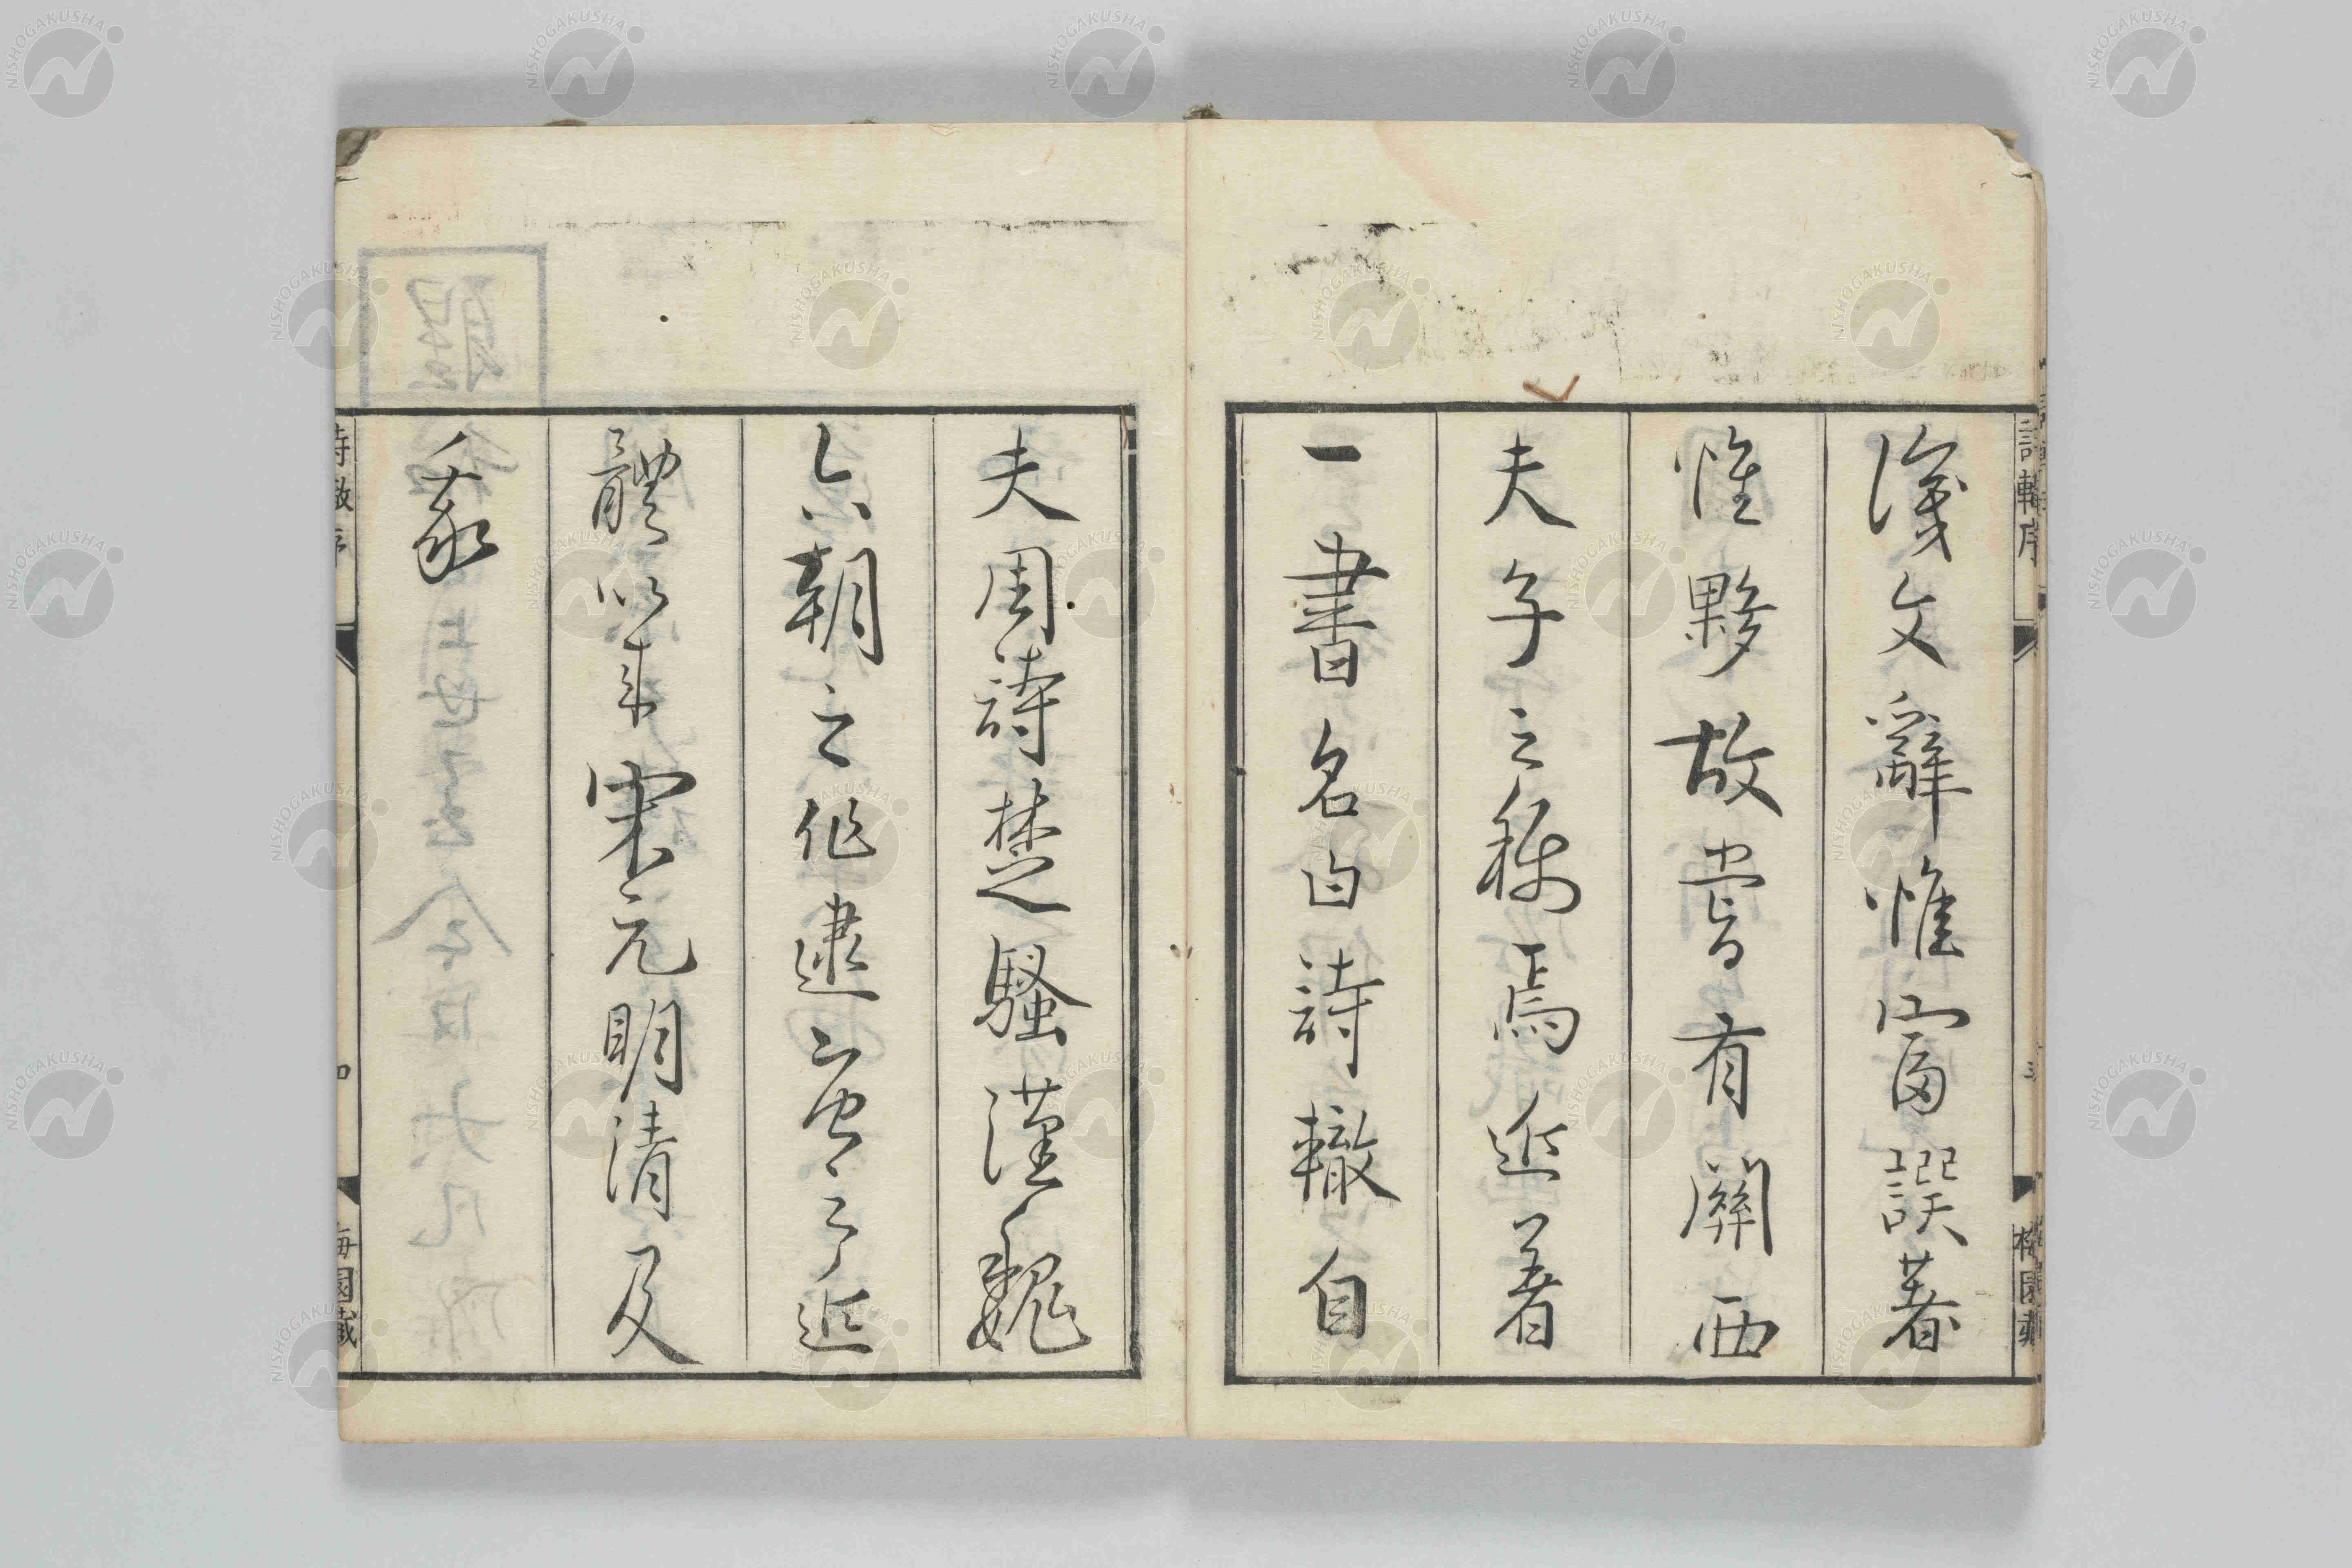 詩轍序
三
梅園藏
淺文辭惟富譔著
惟夥故嘗有關西
夫子之稱焉近著
一書名曰詩轍自
夫周詩楚騷漢魏
六朝之作逮唐之近
體以来宋元明清及
我
詩轍序
四
梅園藏
NISHOGAKUSHA